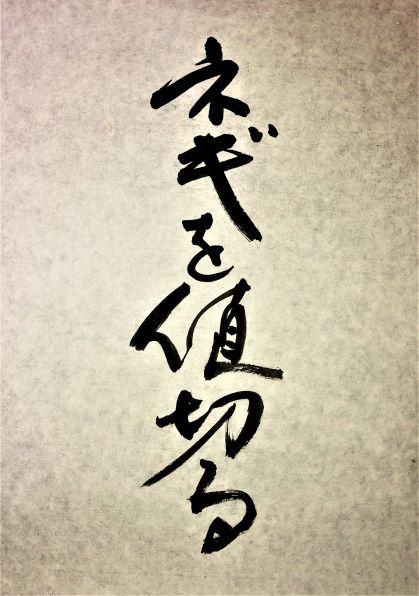 ネギを値切る